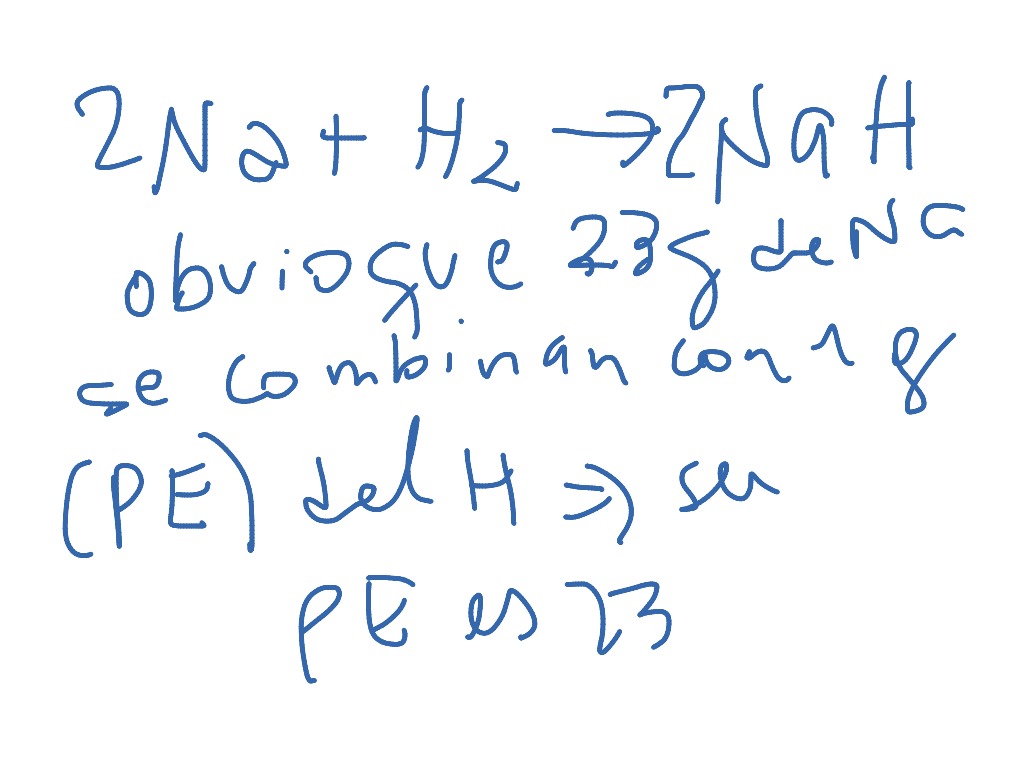 2Na + H2 → 2NaH
obvio que 23g de Na
se combinan con 1 g
(PE) del H ⇒ su
PE es 23